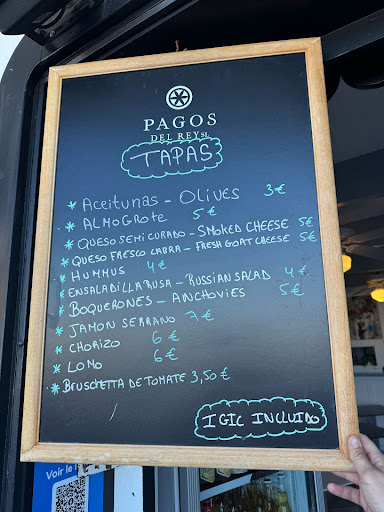 PAGOS
DEL REY S.L.
TAPAS
* ACEITUNAS - OLIVES 3€
* ALMOGROTE 5€
* QUESO SEMICURADO - SMOKED CHEESE 5€
* QUESO FRESCO CABRA - FRESH GOAT CHEESE 5€
* HUMMUS 4€
* ENSALADILLA RUSA - RUSSIAN SALAD 4€
* BOQUERONES - ANCHOVIES 5€
* JAMON SERRANO 7€
* CHORIZO 6€
* LOMO 6€
* BRUSCHETTA DE TOMATE 3,50€
IGIC INCLUIDO
Voir le